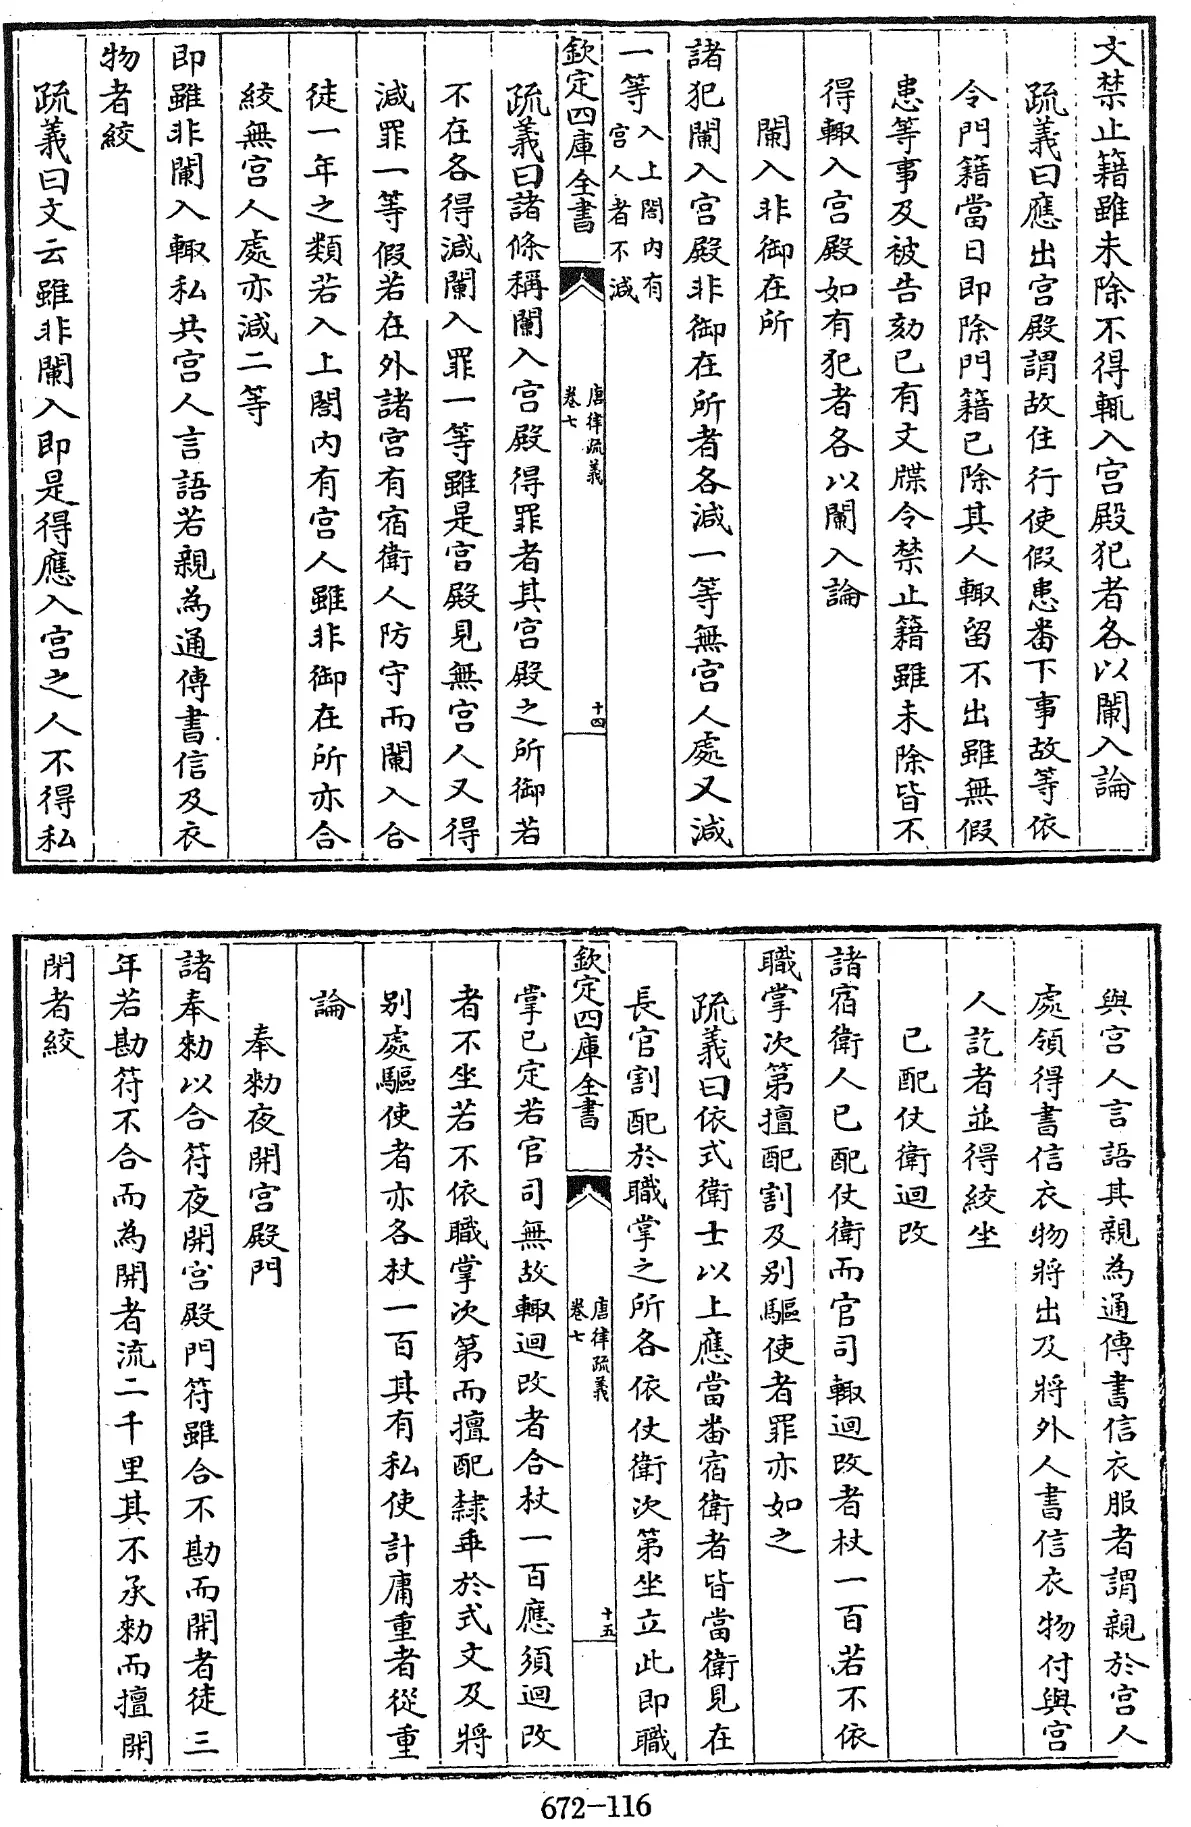 文禁止籍雖未除不得輒入宮殿犯者各以闌入論
疏義曰應出宮殿謂故住行使假患番下事故等依
令門籍當日即除門籍已除其人輒留不出雖無假
患等事及被告劾已有文牒令禁止籍雖未除皆不
得輙入宮殿如有犯者各以闌入論
闌入非御在所
諸犯闌入宮殿非御在所者各減一等無宮人處又減
一等入上閤内有宮人者不減
欽定四庫全書
唐律疏義
卷七
十四
疏義曰諸條稱闌入宮殿得罪者其宮殿之所御若
不在各得減闌入罪一等雖是宮殿見無宮人又得
減罪一等假若在外諸宮有宿衛人防守而闌入合
徒一年之類若入上閤内有宮人雖非御在所亦合
絞無宮人處亦減二等
即雖非闌入輙私共宮人言語若親為通傳書信及衣
物者絞
疏義曰文云雖非闌入即是得應入宮之人不得私
與宮人言語其親為通傳書信衣服者謂親於宮人
處領得書信衣物將出及將外人書信衣物付與宮
人訖者並得絞坐
已配仗衛迴改
諸宿衛人已配仗衛而官司輙迴改者杖一百若不依
職掌次第擅配割及别驅使者罪亦如之
疏義曰依式衛士以上應當番宿衛者皆當衛見在
長官割配於職掌之所各依仗衛次第坐立此即職
欽定四庫全書
唐律疏義
卷七
十五
掌已定若官司無故輙迴改者合杖一百應須迴改
者不坐若不依職掌次第而擅配隸乖於式文及將
别處驅使者亦各杖一百其有私使計庸重者從重
論
奉勑夜開宮殿門
諸奉勑以合符夜開宮殿門符雖合不勘而開者徒三
年若勘符不合而為開者流二千里其不承勑而擅開
閉者絞
672-116